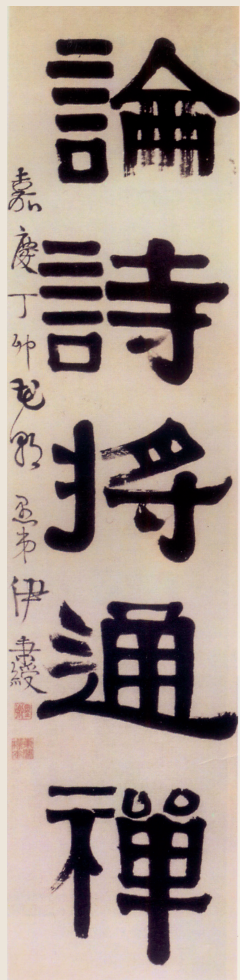 論詩將通禪
嘉慶丁卯花朝愚弟伊秉綬